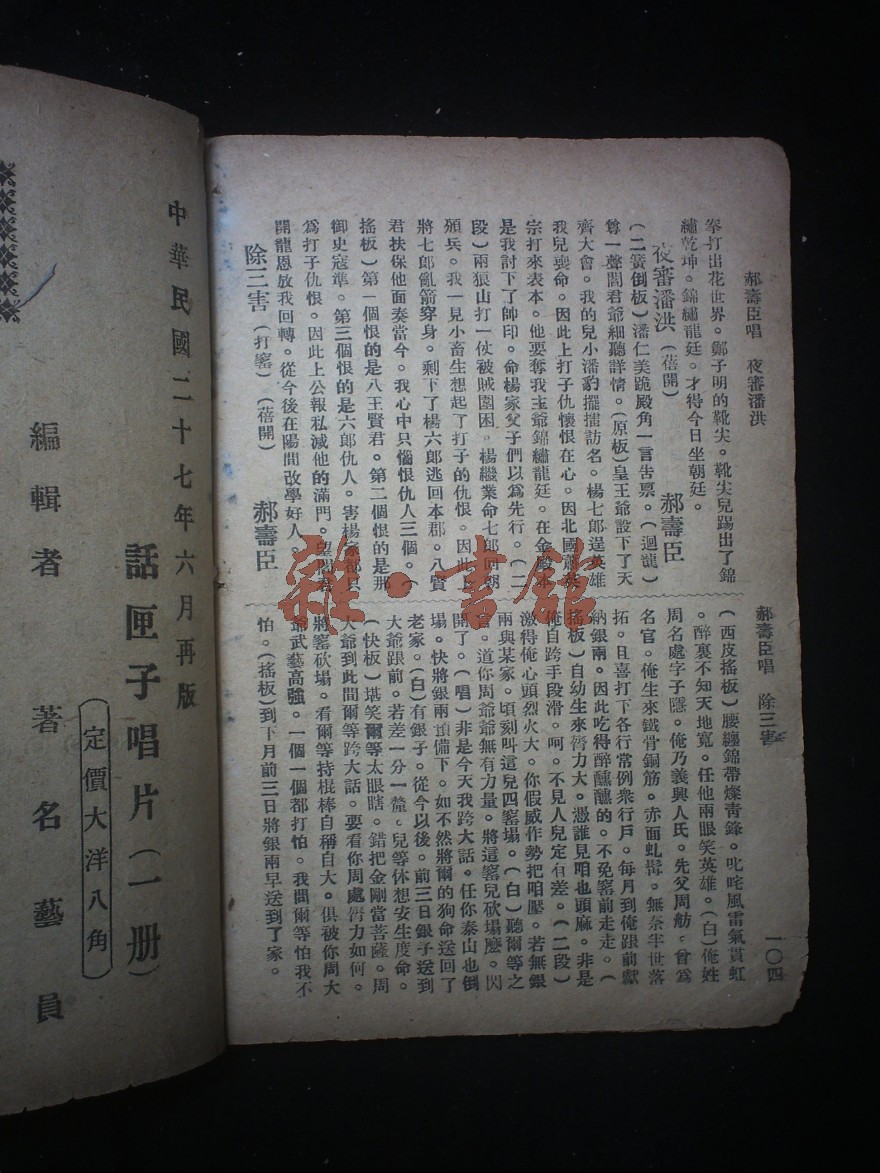 郝壽臣唱　夜審潘洪
峯打出花世界。鄭子明的靴尖。靴尖兒踢出了錦
繡乾坤。錦繡龍廷。才得今日坐朝廷。
夜審潘洪（蓓開）　郝壽臣
（二簧倒板）潘仁美跪殿角一言告禀。（迴龍）
尊一聲閻君爺細聽詳情。（原板）皇王爺設下了天
齊大會。我的兒小潘豹擺擂訪名。楊七郎逞英雄
我兒喪命。因此上打子仇懷恨在心。因北國蕭
宗打來表本。他要奪我主爺錦繡龍廷。在金殿
是我討下了帥印。命楊家父子們以為先行。（二
段）兩狼山打一仗被賊圍困。楊繼業命七郎回朝
頒兵。我一見小畜生想起了打子的仇恨。因此上
將七郎亂箭穿身。剩下了楊六郎逃回本郡。八賢
君扶保他面奏當今。我心中只惱恨仇人三個。（
搖板）第一個恨的是八王賢君。第二個恨的是那
御史寇準。第三個恨的是六郎仇人。害楊家都只
為打子仇恨。因此上公報私滅他的滿門。望閻君
開龍恩放我回轉。從今後在陽間改學好人。
除三害（打窰）（蓓開）　郝壽臣
郝壽臣唱　除三害
一〇四
（西皮搖板）腰纏錦帶燦青鋒。叱咤風雷氣貫虹
。醉裏不知天地寬。任他兩眼笑英雄。（白）俺姓
周名處字子隱。俺乃義興人氏。先父周舫。曾為
名官。俺生來鐵骨銅筋。赤面虬髯。無奈半世落
拓。且喜打下各行常例衆行戶。每月到俺跟前獻
納銀兩。因此吃得醉醺醺的。不免窰前走走。（
搖板）自幼生來膂力大。憑誰見咱也頭麻。非是
俺自跨手段滑。呵。不見人兒定有差。（二段）
激得俺心頭烈火大。你假威作勢把咱壓。若無銀
兩與某家。頃刻叫這兒四窰塌。（白）聽爾等之
言。道你周爺爺無有力量。將這窰兒砍塌麽。閃
開了。（唱）非是今天我跨大話。任你泰山也倒
塌。快將銀兩預備下。如不然將爾的狗命送回了
老家。（白）有銀子。從今以後。前三日銀子送到
大爺跟前。若差一分一釐。兒等休想安生度命。
（快板）堪笑爾等太眼瞎。錯把金剛當菩薩。周
大爺到此間爾等跨大話。要看你周處膂力如何。
將窰砍塌。看爾等持棍棒自稱自大。俱被你周大
爺武藝高強。一個一個都打怕。我問爾等怕我不
怕。（搖板）到下月前三日將銀兩早送到了家。
中華民國二十七年六月再版
話匣子唱片（一册）
定價大洋八角
編輯者　著名藝員
雜·書館